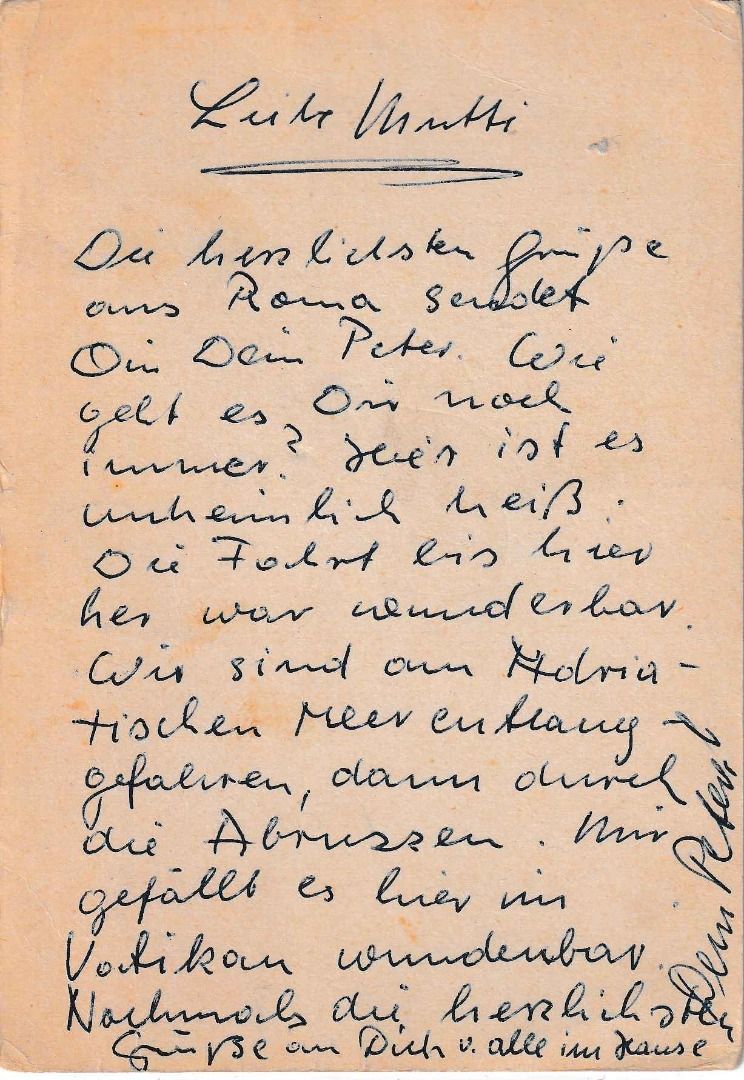 Liebe Mutti
Die herzlichsten Grüße
aus Roma sendet
Dir Dein Peter. Wie
geht es Dir noch
immer? Hier ist es
unheimlich heiß.
Die Fahrt bis hier
her war wunderbar.
Wir sind am Adria-
tischen Meer entlang-
gefahren, dann durch
die Abruzzen. Mir
gefällt es hier im
Vatikan wunderbar.
Nochmals die herzlichsten
Grüße an Dich u. alle im Hause
Dein Peterl